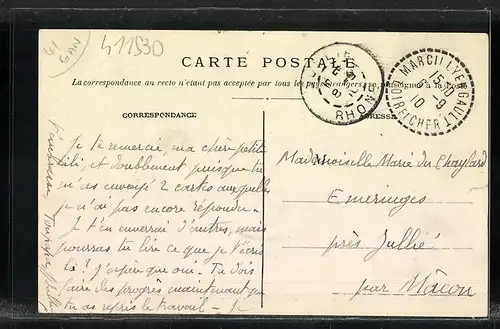 411530
CARTE POSTALE
La correspondance au recto n'était pas acceptée par tous les pays
CORRESPONDANCE
ADRESSE
RHONE
MARCILLY EN GAULT
15-30
8-9
10
LOIR ET CHER
Je te remercie, ma chère petite
Lili, et doublement puisque tu
m'as envoyé 2 cartes auxquelles
je n'ai pas encore répondu.
Je t'en enverrai d'autres, mais
pourras tu lire ce que je t'écris
là ? J'espère que oui. Tu dois
faire des progrès maintenant que
tu as repris le travail - Je
Mademoiselle Marie du Chaylard
Emeringes
près Jullié
par Mâcon